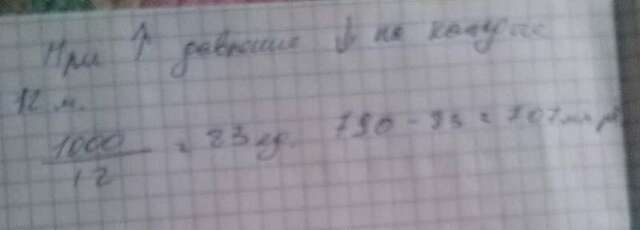 При ↑ давление ↓ на каждые
12 м.
1000
12 = 83 ед. 790 - 83 = 707 мм рт